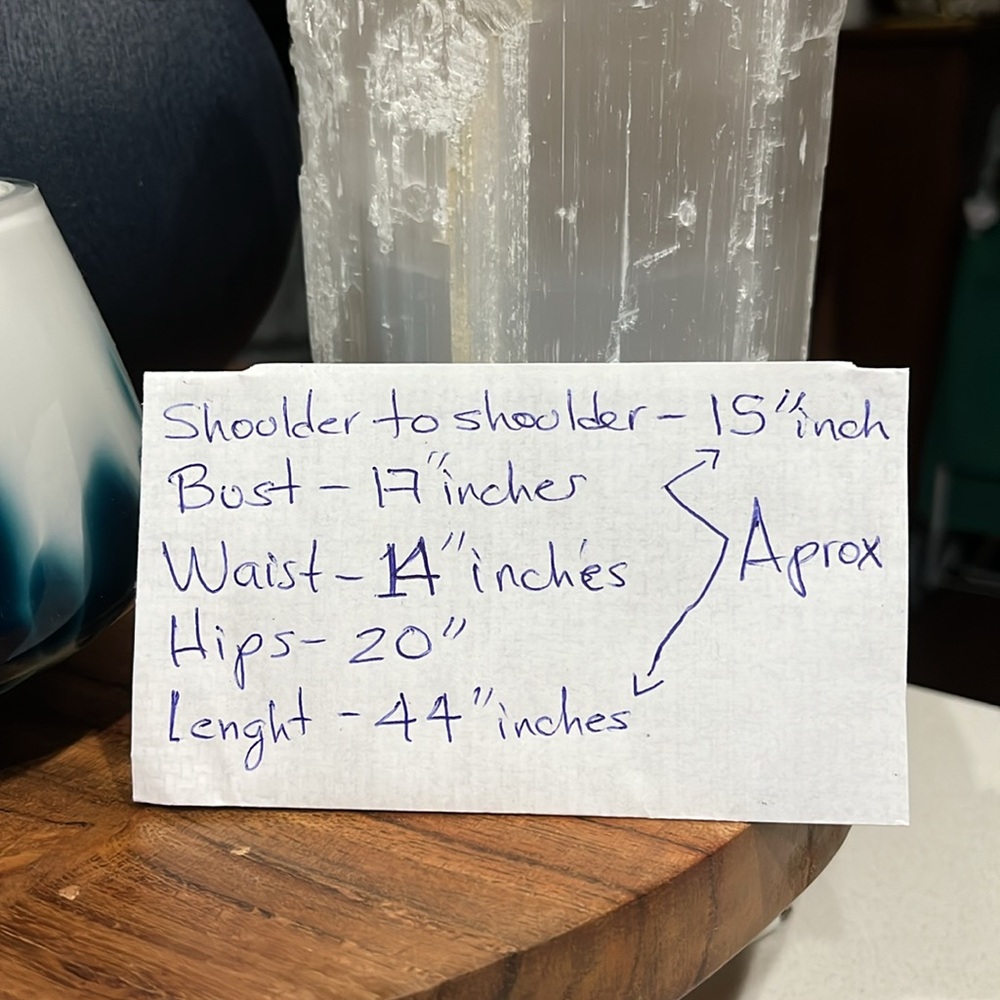 Shoulder to shoulder - 15" inch
Bust - 17" inches
Waist - 14" inches
Hips - 20"
Lenght - 44" inches
Aprox